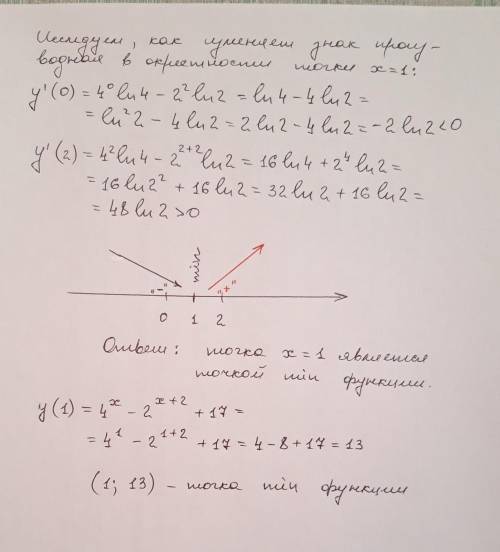 Исследуем, как изменяет знак произ-
водная в окрестности точки x=1:
y'(0) = 4⁰ ln4 - 2² ln2 = ln4 - 4 ln2 =
= ln²2 - 4 ln2 = 2 ln2 - 4 ln2 = -2 ln2 < 0
y'(2) = 4² ln4 - 2²⁺² ln2 = 16 ln4 + 2⁴ ln2 =
= 16 ln2² + 16 ln2 = 32 ln2 + 16 ln2 =
= 48 ln2 > 0
min
"-" "+"
0 1 2
Ответ: точка x = 1 является
точкой min функции.
y(1) = 4ˣ - 2ˣ⁺² + 17 =
= 4¹ - 2¹⁺² + 17 = 4 - 8 + 17 = 13
(1; 13) - точка min функции